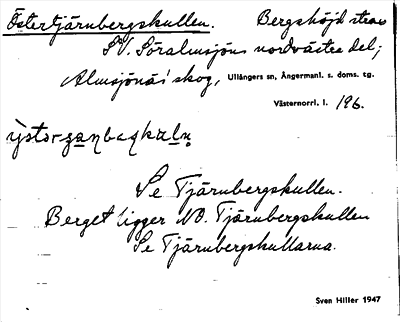 Östertjärnbergskullen. Bergshöjd strax
SV. Söralmsjöns nordvästra del;
Almsjönäs' skog, Ullångers sn, Ångermanl. s. doms. tg.
Västernorrl. l. 196.
Se Tjärnbergskullen.
Berget ligger NO. Tjärnbergskullen
Se Tjärnbergskullarna.
Sven Hiller 1947